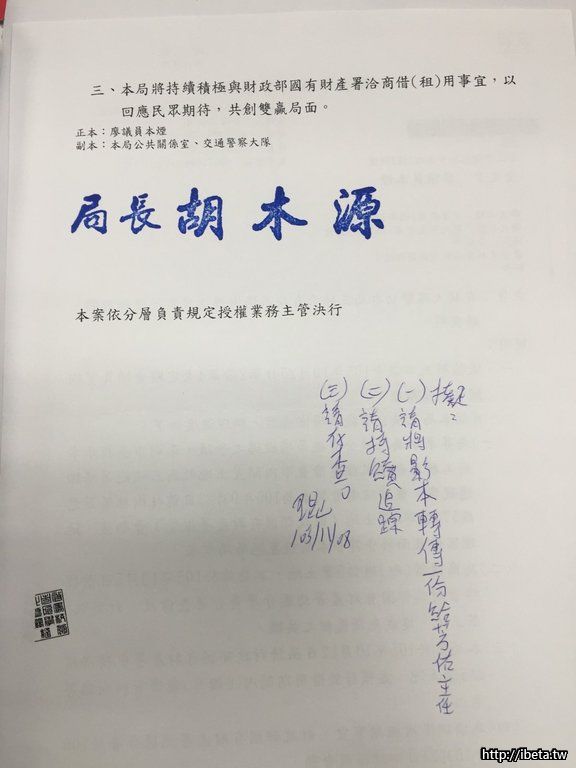 三、本局將持續積極與財政部國有財產署洽商借(租)用事宜，以
回應民眾期待，共創雙贏局面。
正本：廖議員本煙
副本：本局公共關係室、交通警察大隊
局長 胡木源
本案依分層負責規定授權業務主管決行
擬：
(一)請將影本轉傳一份給芳佑主任
(二)請持續追蹤
(三)請存查。
http://ibeta.tw